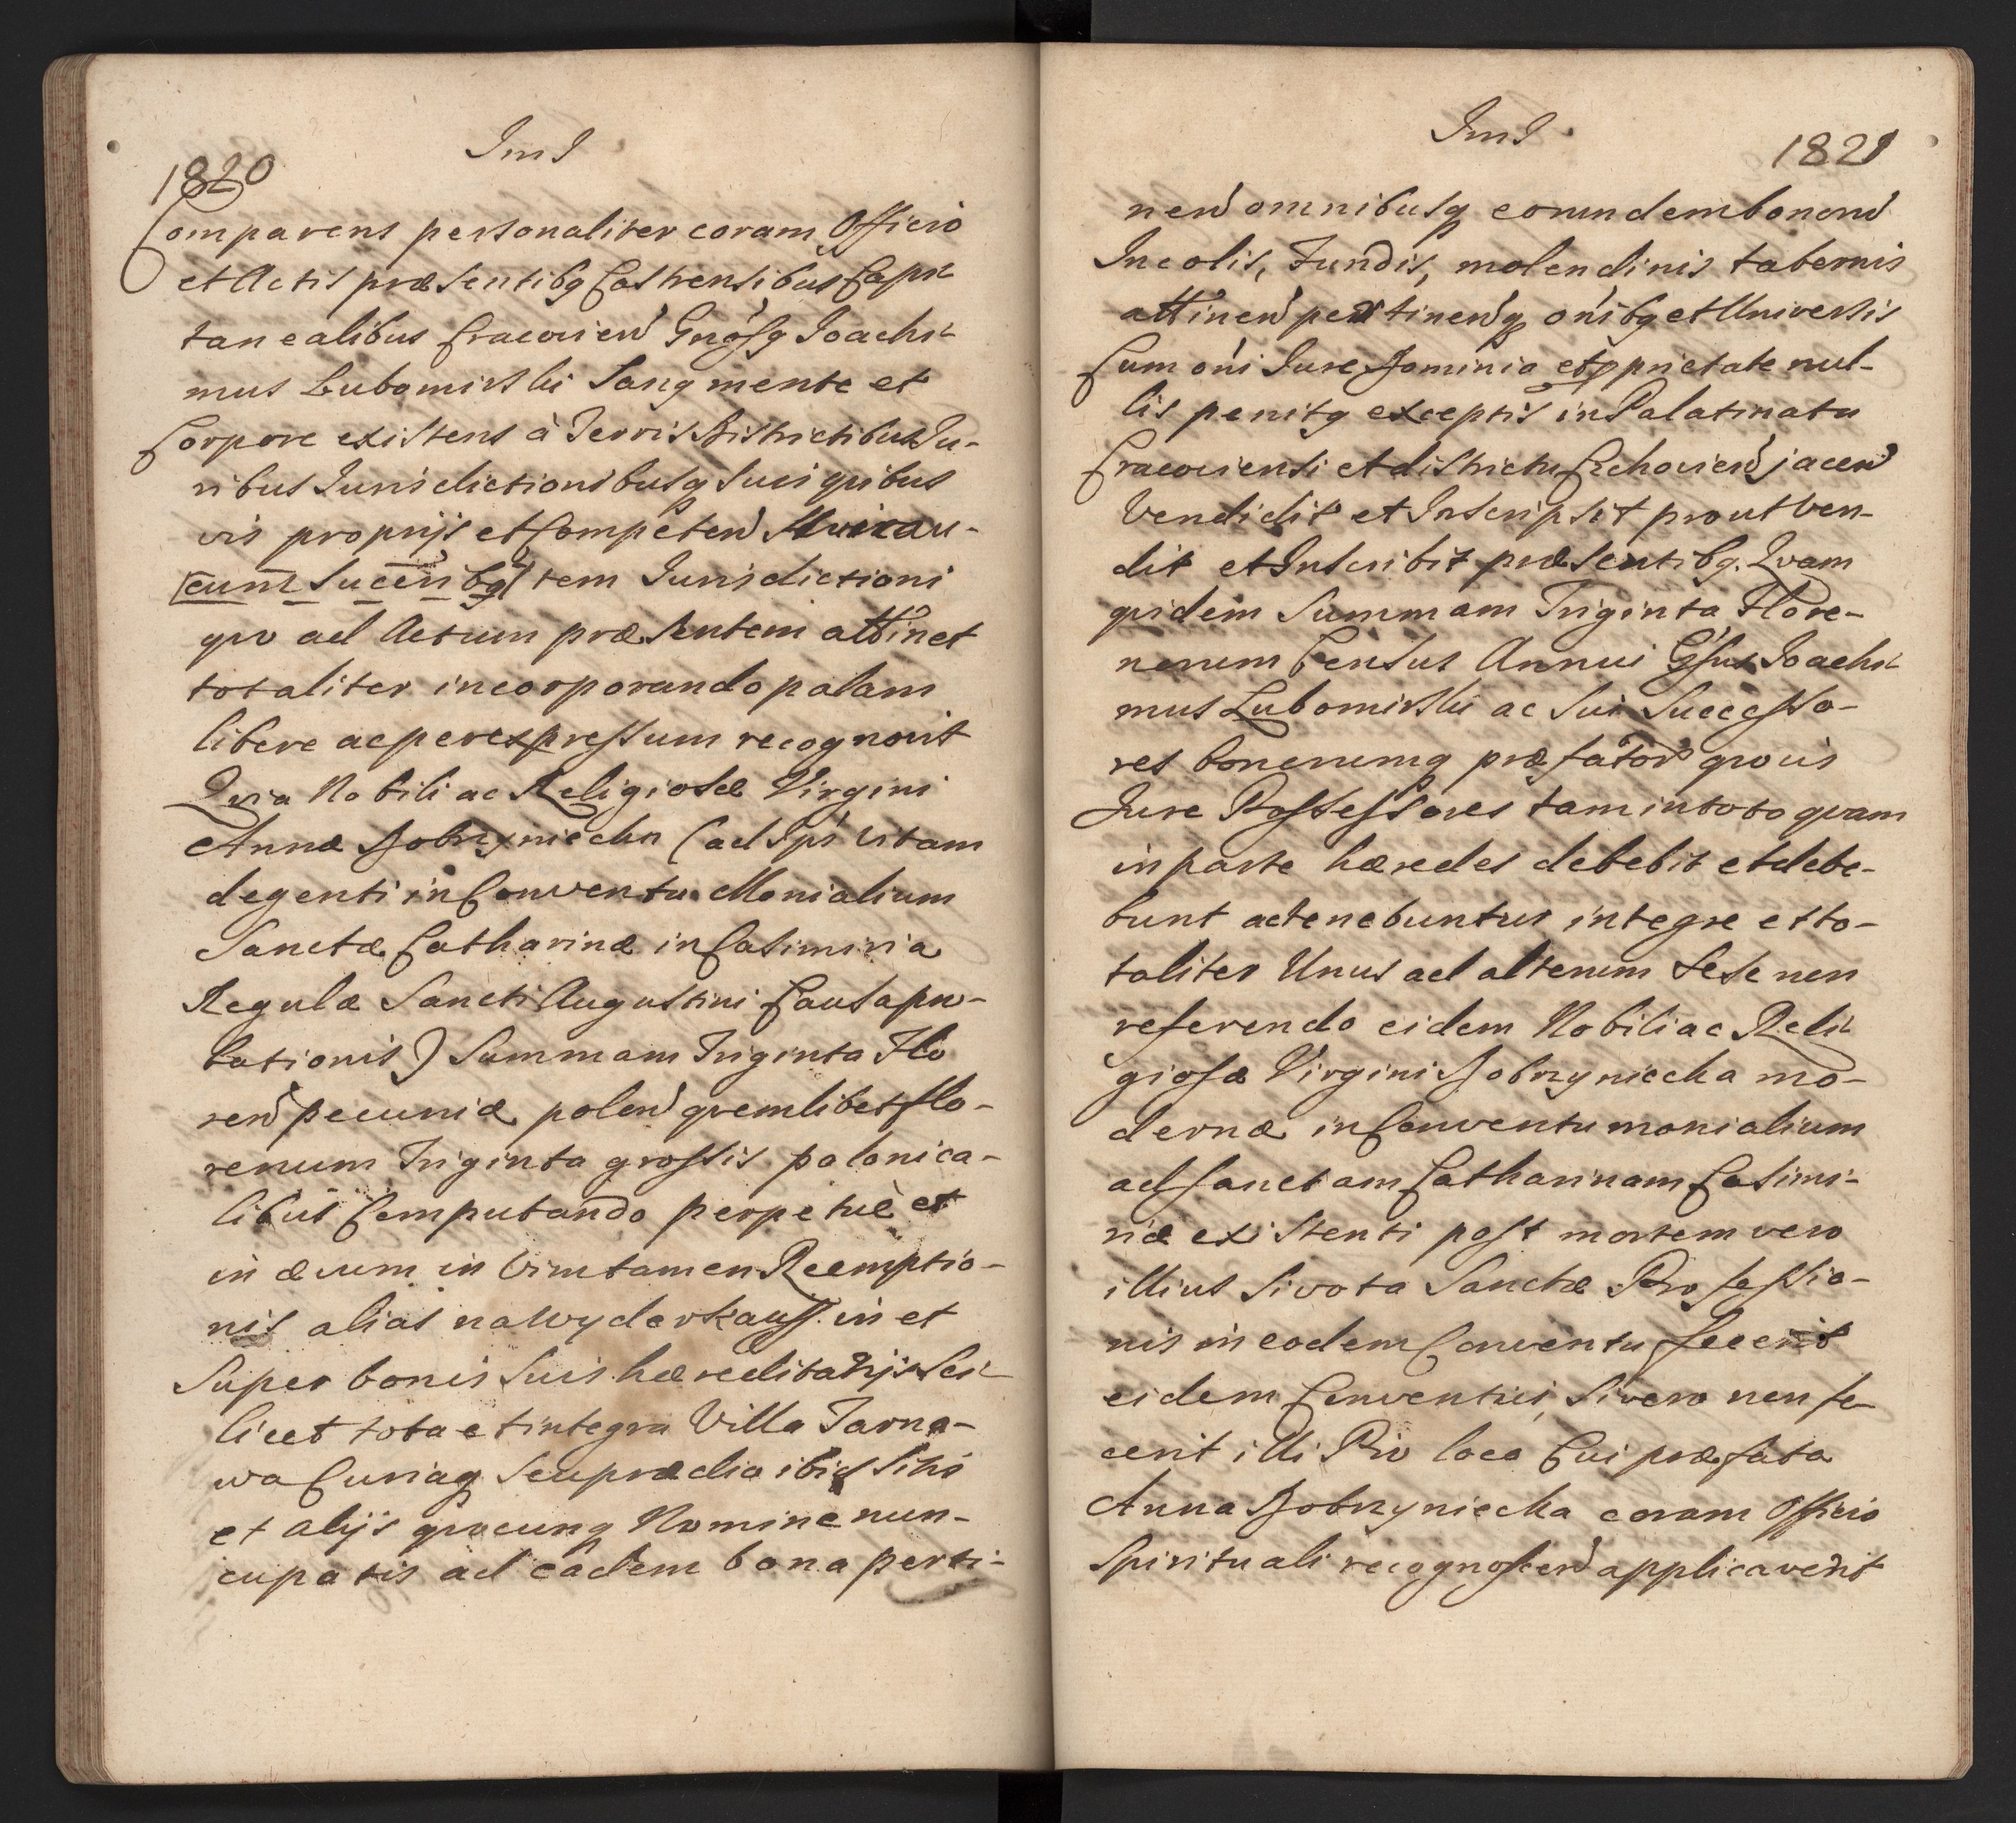 ImI
1820
Comparens personaliter coram Officio
et Actis præsentibq Castrensibus Capi-
tanealibus Cracovien Gnosq Joachi-
mus Lubomirski Sanq mente et
Corpore existens à Terris Districtibus Ju-
ribus Jurisdictionibusq Suis quibus
vis proprijs et Competen
(cum Succeribq) tem Jurisdictioni
quo ad Actum præsentem attinet
totaliter incorporando palam
libere ac per expressum recognovit
Quia Nobili ac Religiosæ Virgini
Annæ Dobrzyniecka (ad Ips vitam
degenti in Conventu Monialium
Sanctæ Catharinæ in Casimiria
Regulæ Sancti Augustini Causa pu-
tationis) Summam Triginta Flo
ren pecuniæ polen quemlibet flo-
renum Triginta grossis polonica-
libus Computando perpetue et
in ævum in vim tamen Reemptio-
nis alias na Wyderkauff. in et
Super bonis Suis hæreditarijs Sci-
licet tota et integra Villa Tarna-
wa Curiaq Seu prædia ibid sitis
et alijs quocunq Nomine nun-
cupatis ad eadem bona perti-
ImI
1821
nen omnibusq eorundem bonorum
Incolis, Fundis, molendinis tabernis
attinen pertinenq onibq et Universis
Cum oni Jure Dominio et pprietate nul-
lis penitq exceptis in Palatinatu
Cracoviensi et districtu Czchovien jacen
Vendidit et Inscripsit prout ven-
dit et Inscribit præsentibq. Quam
quidem Summam Triginta Flore-
norum Census Annui Gsus Joachi-
mus Lubomirski ac Sui Successo-
res bonorumq præfator quovis
Jure Possessores tam in toto quam
in parte hæredes debebit et debe-
bunt ac tenebuntur integre et to-
taliter Unus ad alterum Sese non
referendo eidem Nobili ac Reli-
giosæ Virgini Dobrzyniecka mo-
dernæ in Conventu monialium
ad Sanctam Catharinam Casimi-
riæ existenti post mortem vero
illius Si vota Sanctæ Professio-
nis in eodem Conventu fecerit
eidem Conventui, Si vero non fe-
cerit illi Pio loco Cui præfata
Anna Dobrzyniecka coram Officio
Spirituali recognoscen applicaverit